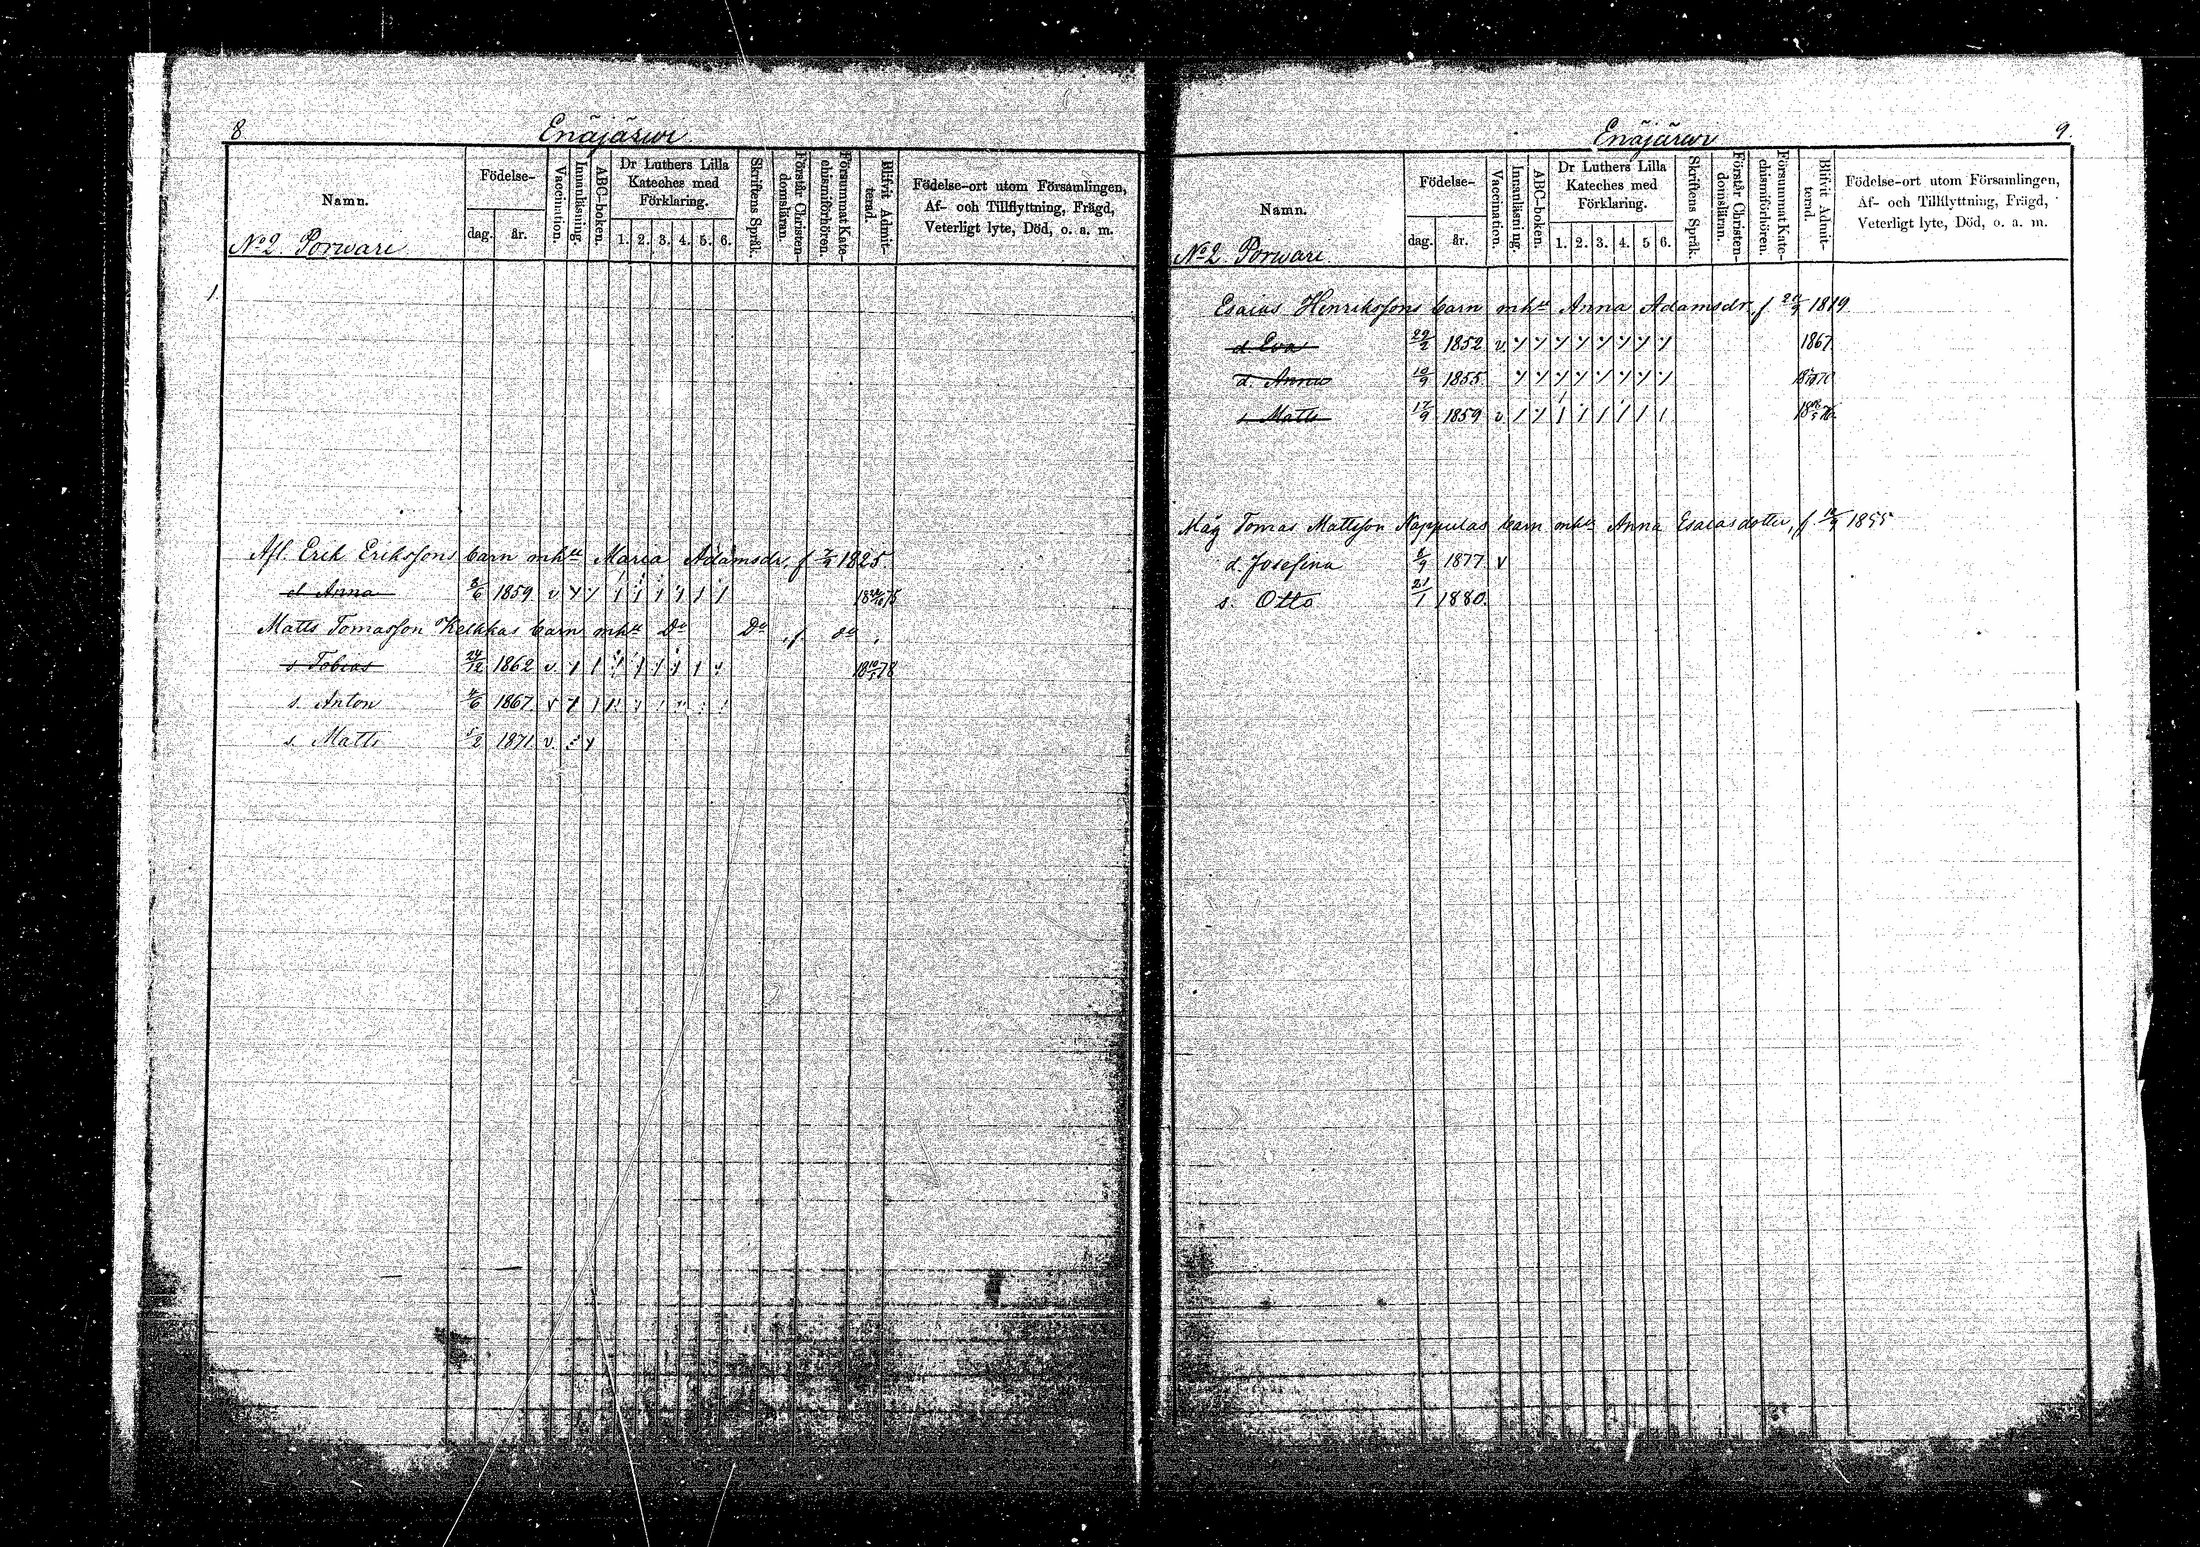 8 Enäjärwi
Namn. Födelse- dag. år. Vaccination. Innanläsning. ABC-boken. Dr Luthers Lilla Kateches med Förklaring. 1. 2. 3. 4. 5. 6. Skriftens Språk. Förstår Christendomsläran. Försummat Katechismiförhören. Blifvit Admitterad. Födelse-ort utom Församlingen, Af- och Tillflyttning, Frägd, Veterligt lyte, Död, o. a. m.
No 2. Porwari
1.
Afl. Erik Erikssons barn mhu Maria Adamsdr, f 1825.
d Anna 8/6 1859 v
Matts Tomasson Kelkkas barn mhu Do Do, f. do,
s Tobias 24/12 1862 v. 18 78
s. Anton 4/6 1867 v
s. Matts 1/2 1871 v.
Enäjärwi 9
Namn. Födelse- dag. år. Vaccination. Innanläsning. ABC-boken. Dr Luthers Lilla Kateches med Förklaring. 1. 2. 3. 4. 5 6. Skriftens Språk. Förstår Christendomsläran. Försummat Katechismiförhören. Blifvit Admitterad. Födelse-ort utom Församlingen, Af- och Tillflyttning, Frägd, Veterligt lyte, Död, o. a. m.
No 2 Porwari
Esaias Henrikssons barn mhu Anna Adamsdr, f 1819
d Eva 29/2 1852 v. 1867
d. Anna 10/9 1855
s Matts 17/9 1859 v
Måg Tomas Mattsson Nappulas barn mhu Anna Esaiasdotter, f 10/9 1855
d. Josefina 8/9 1877 v
s. Otto 21/1 1880.